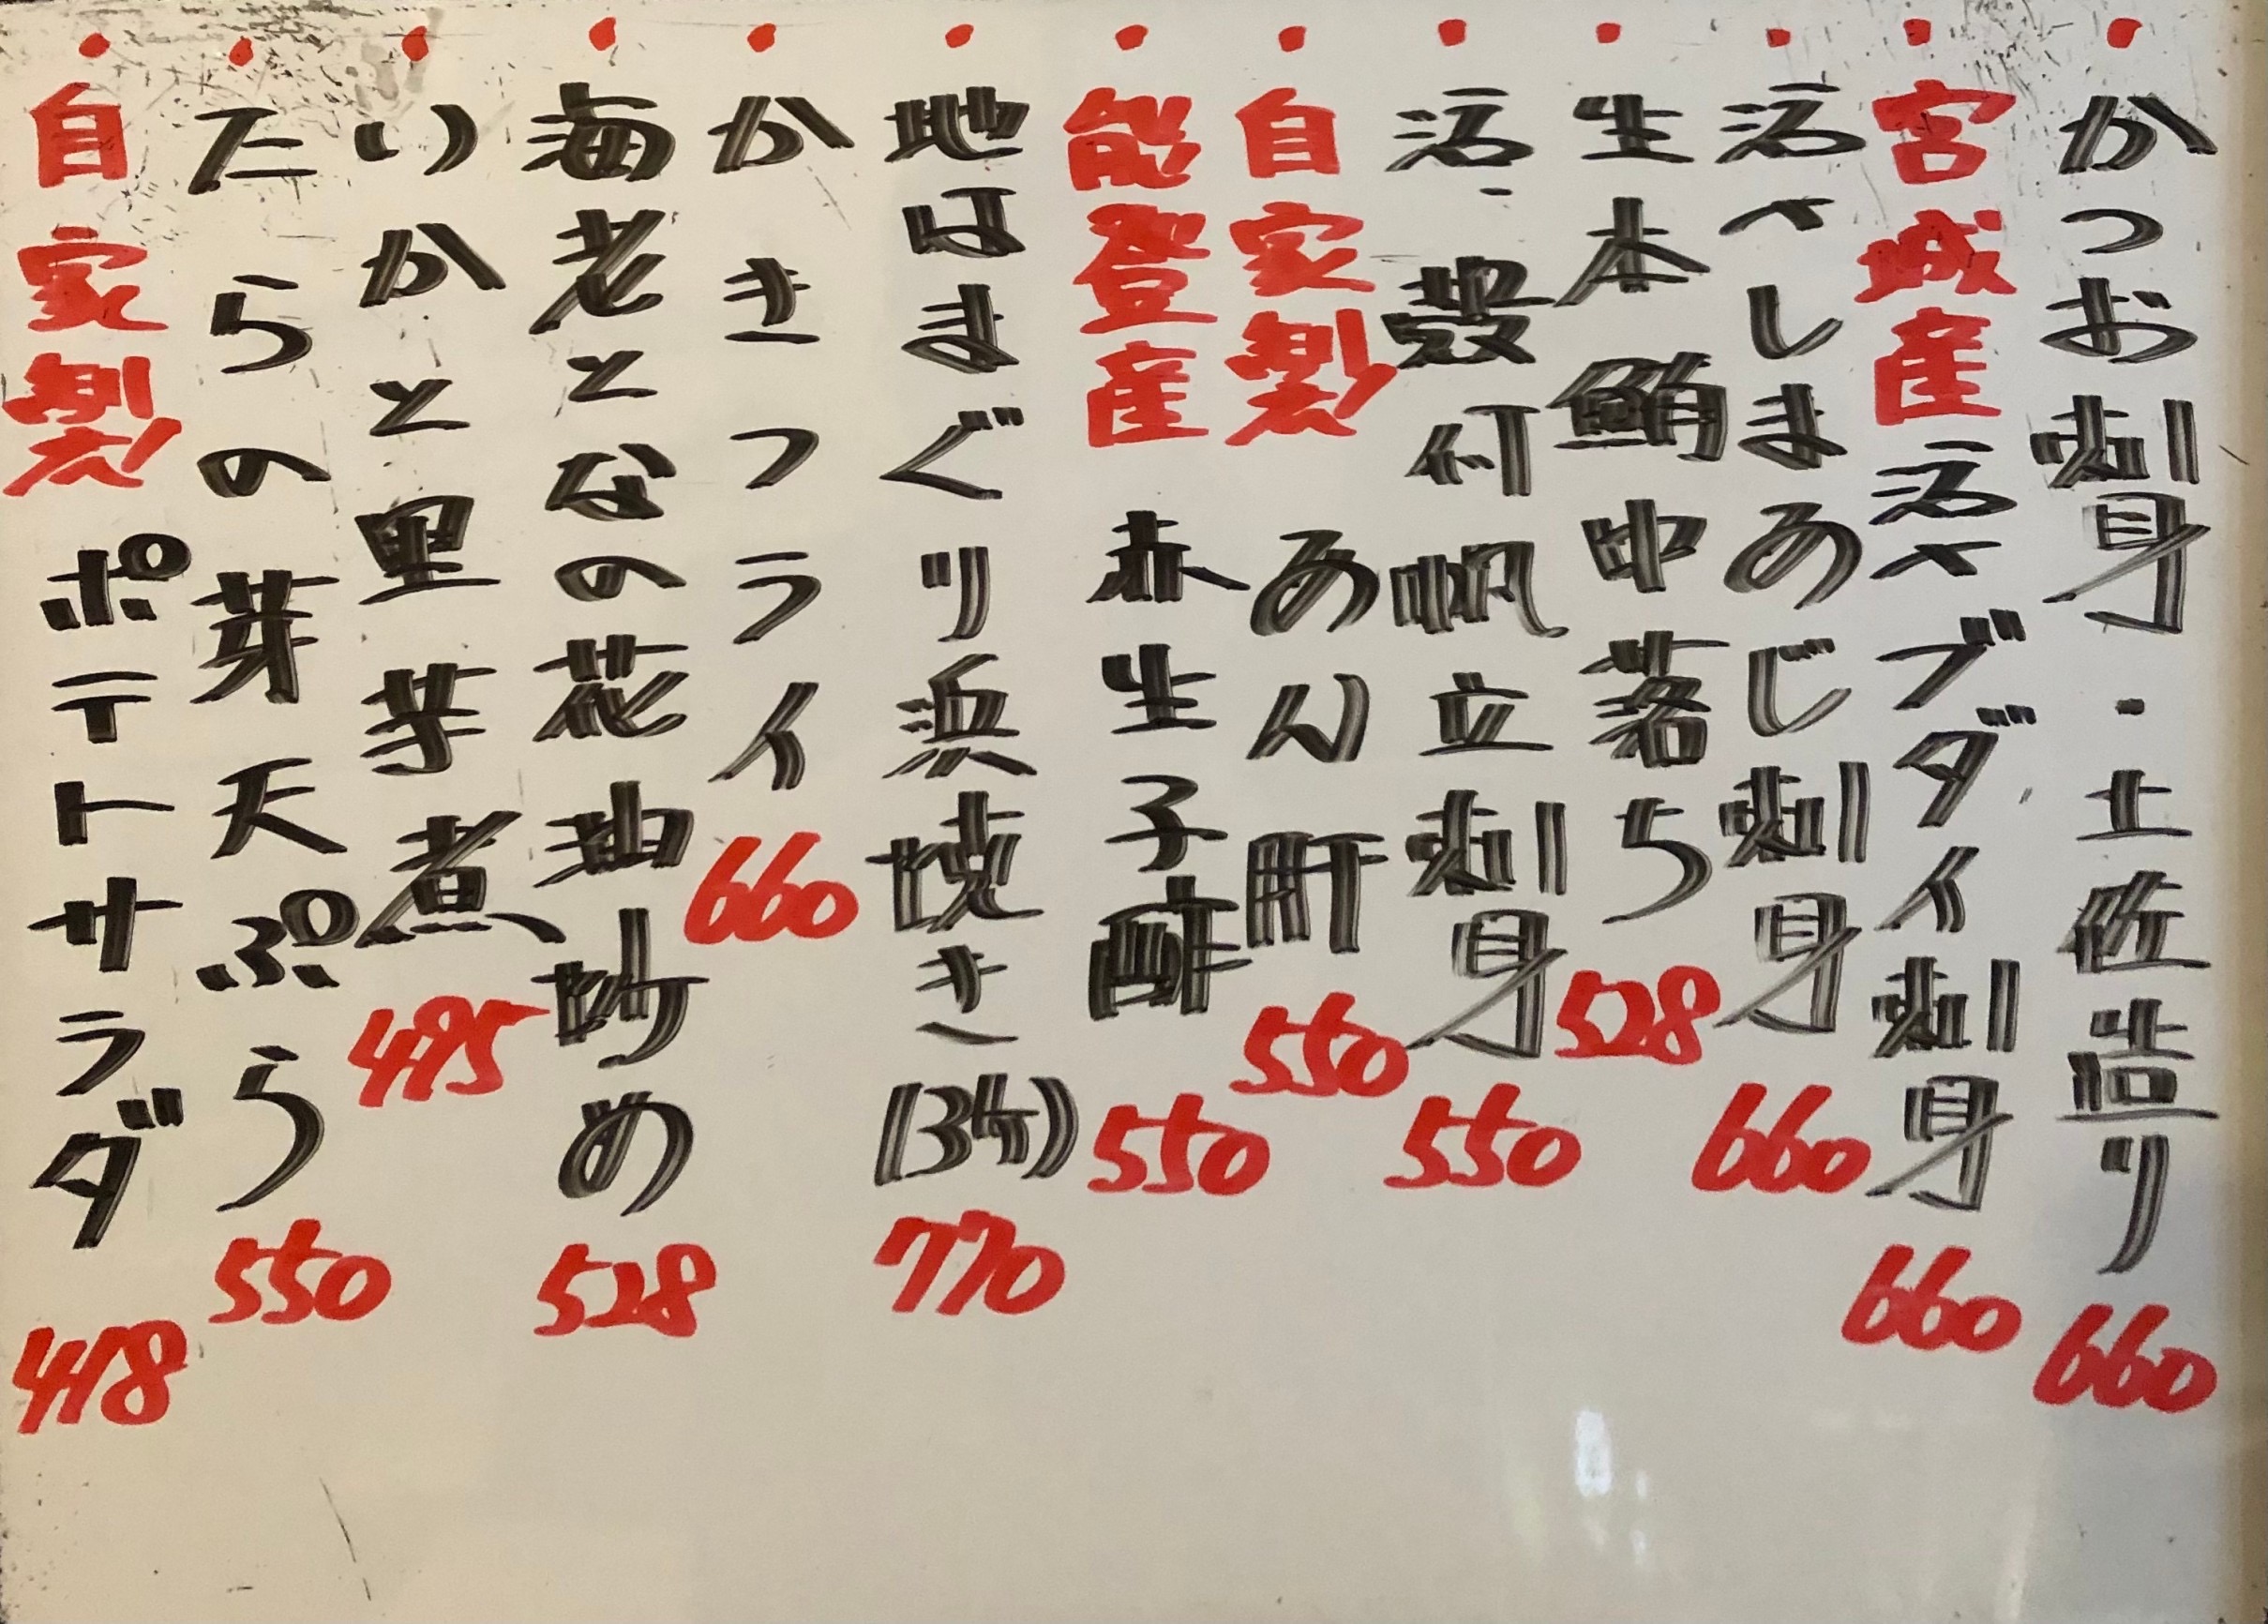 ・かつお刺身・土佐造り 660
・宮城産活〆ブダイ刺身 660
・活〆しまあじ刺身 660
・生本鮪中落ち 528
・活、殻付帆立刺身 550
・自家製 あん肝 550
・能登産 赤生子酢 550
・地はまぐり浜焼き(3ケ) 770
・かきフライ 660
・海老となの花油炒め 528
・いかと里芋煮 495
・たらの芽天ぷら 550
・自家製 ポテトサラダ 418